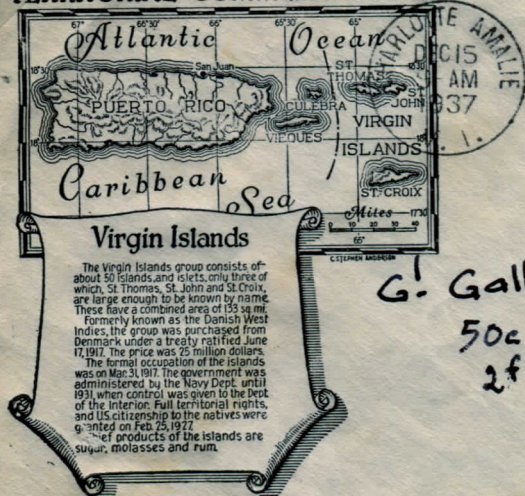 Atlantic Ocean
67° 66°30' 66° 65°30' 65°
18°30' San Juan ST. THOMAS 18°30'
PUERTO RICO CULEBRA ST. JOHN
VIEQUES VIRGIN
18° ISLANDS 18°
Caribbean Sea
ST. CROIX
Miles
0 10 20 30 40
17°30'
65°
C. STEPHEN ANDERSON
CHARLOTTE AMALIE
DEC 15
AM
1937
V. I.
Virgin Islands
The Virgin Islands group consists of
about 50 islands, and islets, only three of
which, St. Thomas, St. John and St. Croix,
are large enough to be known by name.
These have a combined area of 133 sq. mi.
Formerly known as the Danish West
Indies, the group was purchased from
Denmark under a treaty ratified June
17, 1917. The price was 25 million dollars.
The formal occupation of the islands
was on Mar. 31, 1917. The government was
administered by the Navy Dept. until
1931, when control was given to the Dept
of the Interior. Full territorial rights,
and U.S. citizenship to the natives were
granted on Feb. 25, 1927.
Chief products of the islands are
sugar, molasses and rum.
G! Gall
50c
2f